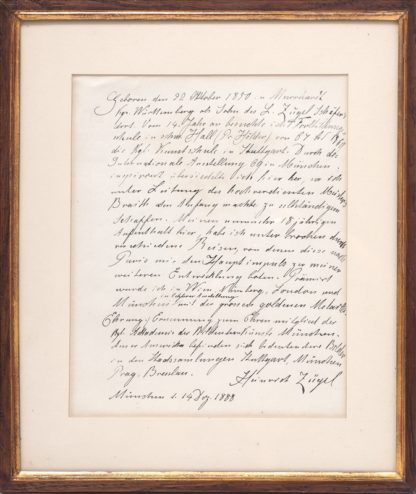 Geboren den 22 Oktober 1850 in Murrhardt
Kgr. Württemberg als Sohn des L. Zügel Schäfer
dort. Vom 14. Jahr an besuchte ich d. Fortbildungs
schule in schw. Hall (Pr. Hölder) von 67 bis 1869
die Kgl. Kunstschule in Stuttgart. Durch die
Internationale Austellung 69 in München
inspirirt übersiedelte ich hier her, wo ich
unter Leitung des hochverdienten Meisters
Braith den Anfang machte zu selbständigem
Schaffen. Meinen nunmehr 18 jährigen
Aufenthalt hier, habe ich unterbrochen durch
verschiedene Reisen, von denen diese nach
Paris mir den Hauptimpuls zu meiner
weiteren Entwicklung boten. Prämirt
wurde ich in Wien Nürnberg, London und
München mit der grossen goldenen Medaille
Ehrung: Ernennung zum Ehren mitglied der
Kgl. Akademie der Bildenden Künste München.
Amerika befinden sich bedeutendere Bilder
in den Stadtsammlungen Stuttgart, München
Prag, Breslau.
Heinrich Zügel
München d. 14 Dez. 1888